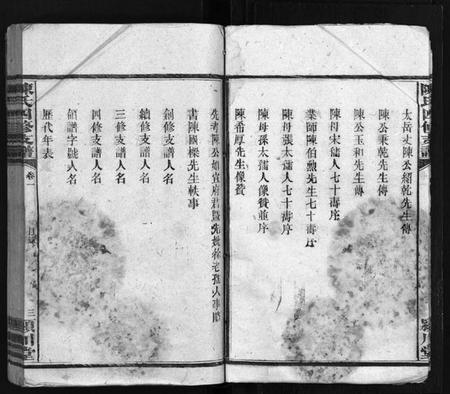 陳氏四修支譜
潁川堂
太岳丈陳公緝乾先生傳
陳公秉乾先生傳
陳公玉和先生傳
陳母宋孺人七十壽序
業師陳伯勲先生七十壽序
陳母張太孺人七十壽序
陳母孫太孺人像贊並序
陳希厚先生像贊
先考陳公如賓府君暨先妣
書陳國樑先生軼事
創修人名
續修人名
三修人名
四修支譜人名
領譜字號人名
歷代年表
陳氏四修支譜
卷一
目錄
三
潁川堂